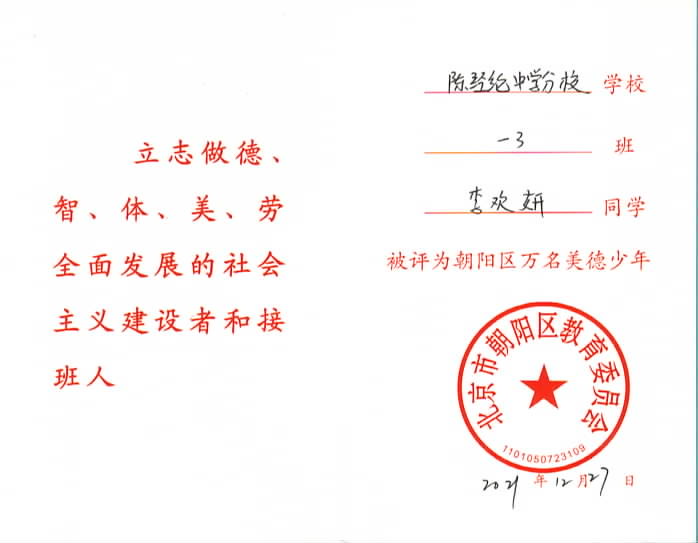 立志做德、
智、体、美、劳
全面发展的社会
主义建设者和接
班人
陈经纶中学分校 学校
一3 班
李欢妍 同学
被评为朝阳区万名美德少年
北京市朝阳区教育委员会
1101050723109
2021 年 12 月 27 日